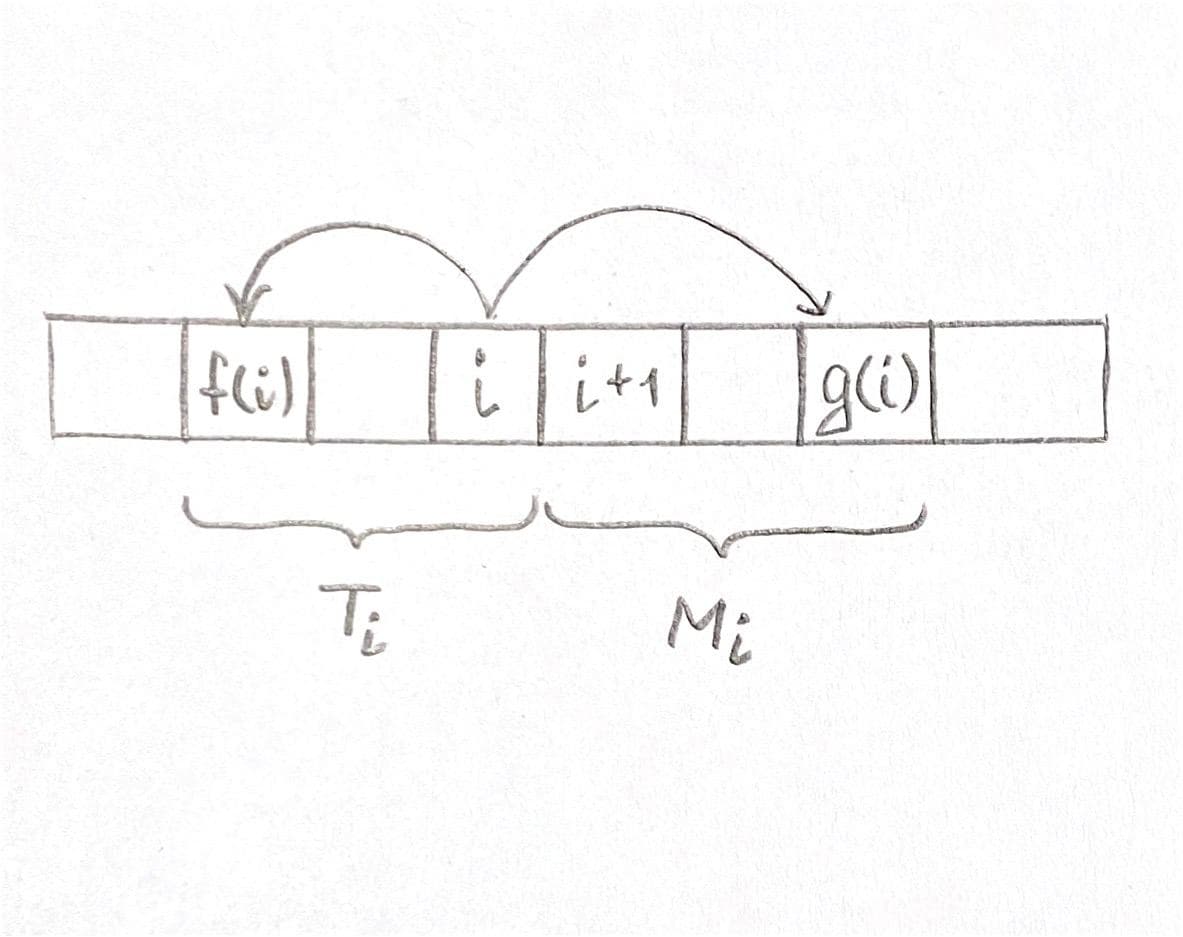 f(i) i i+1 g(i)
T_i M_i